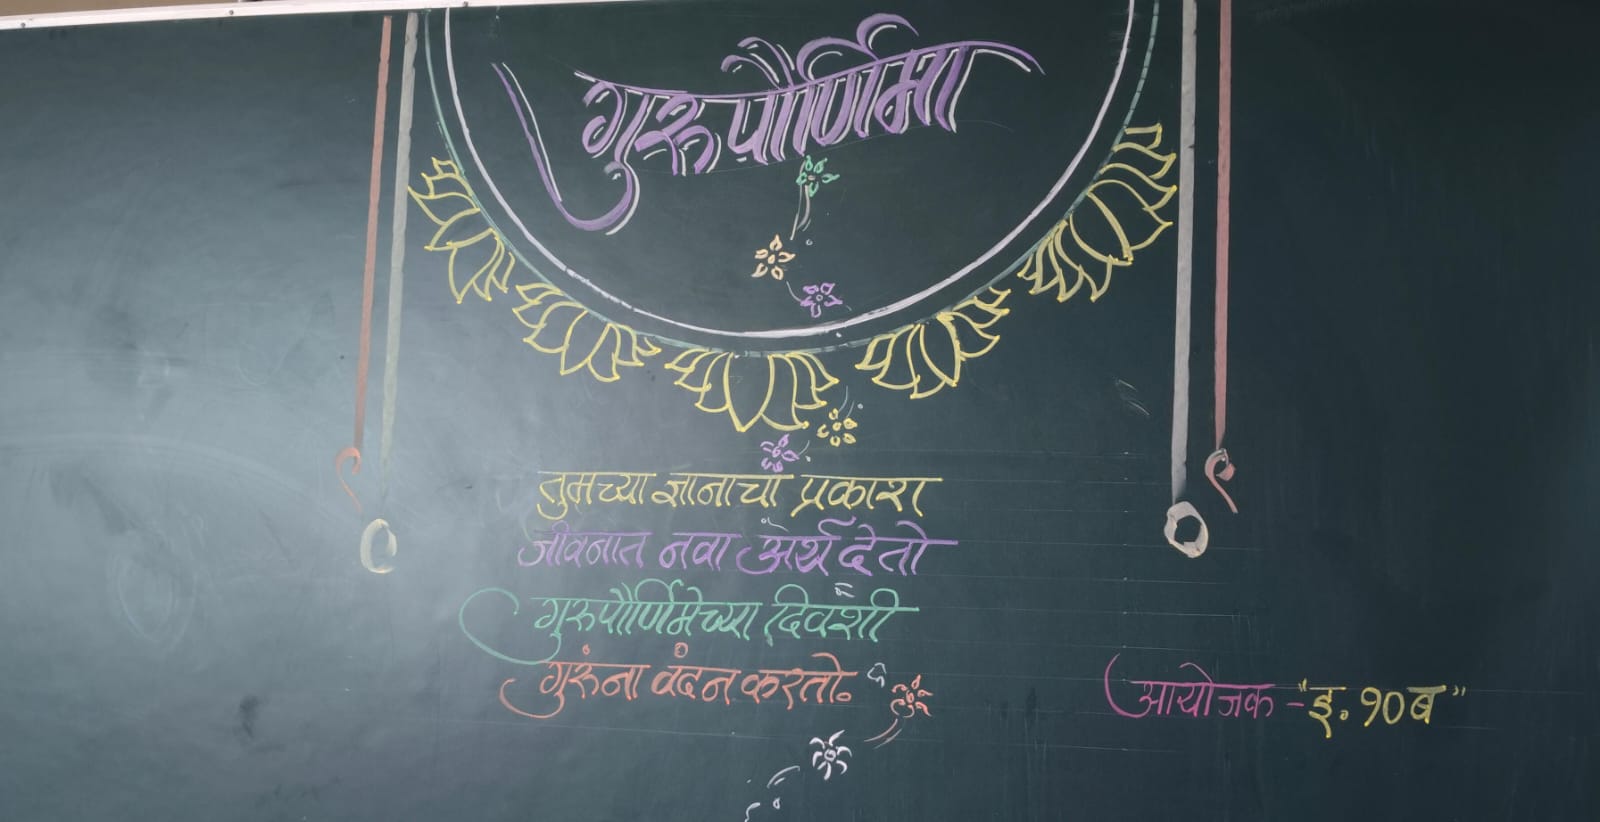 गुरुपौर्णिमा
तुमच्या ज्ञानाचा प्रकाश
जीवनात नवा अर्थ देतो
गुरुपौर्णिमेच्या दिवशी
गुरुंना वंदन करतो.
आयोजक - "इ. १० ब"